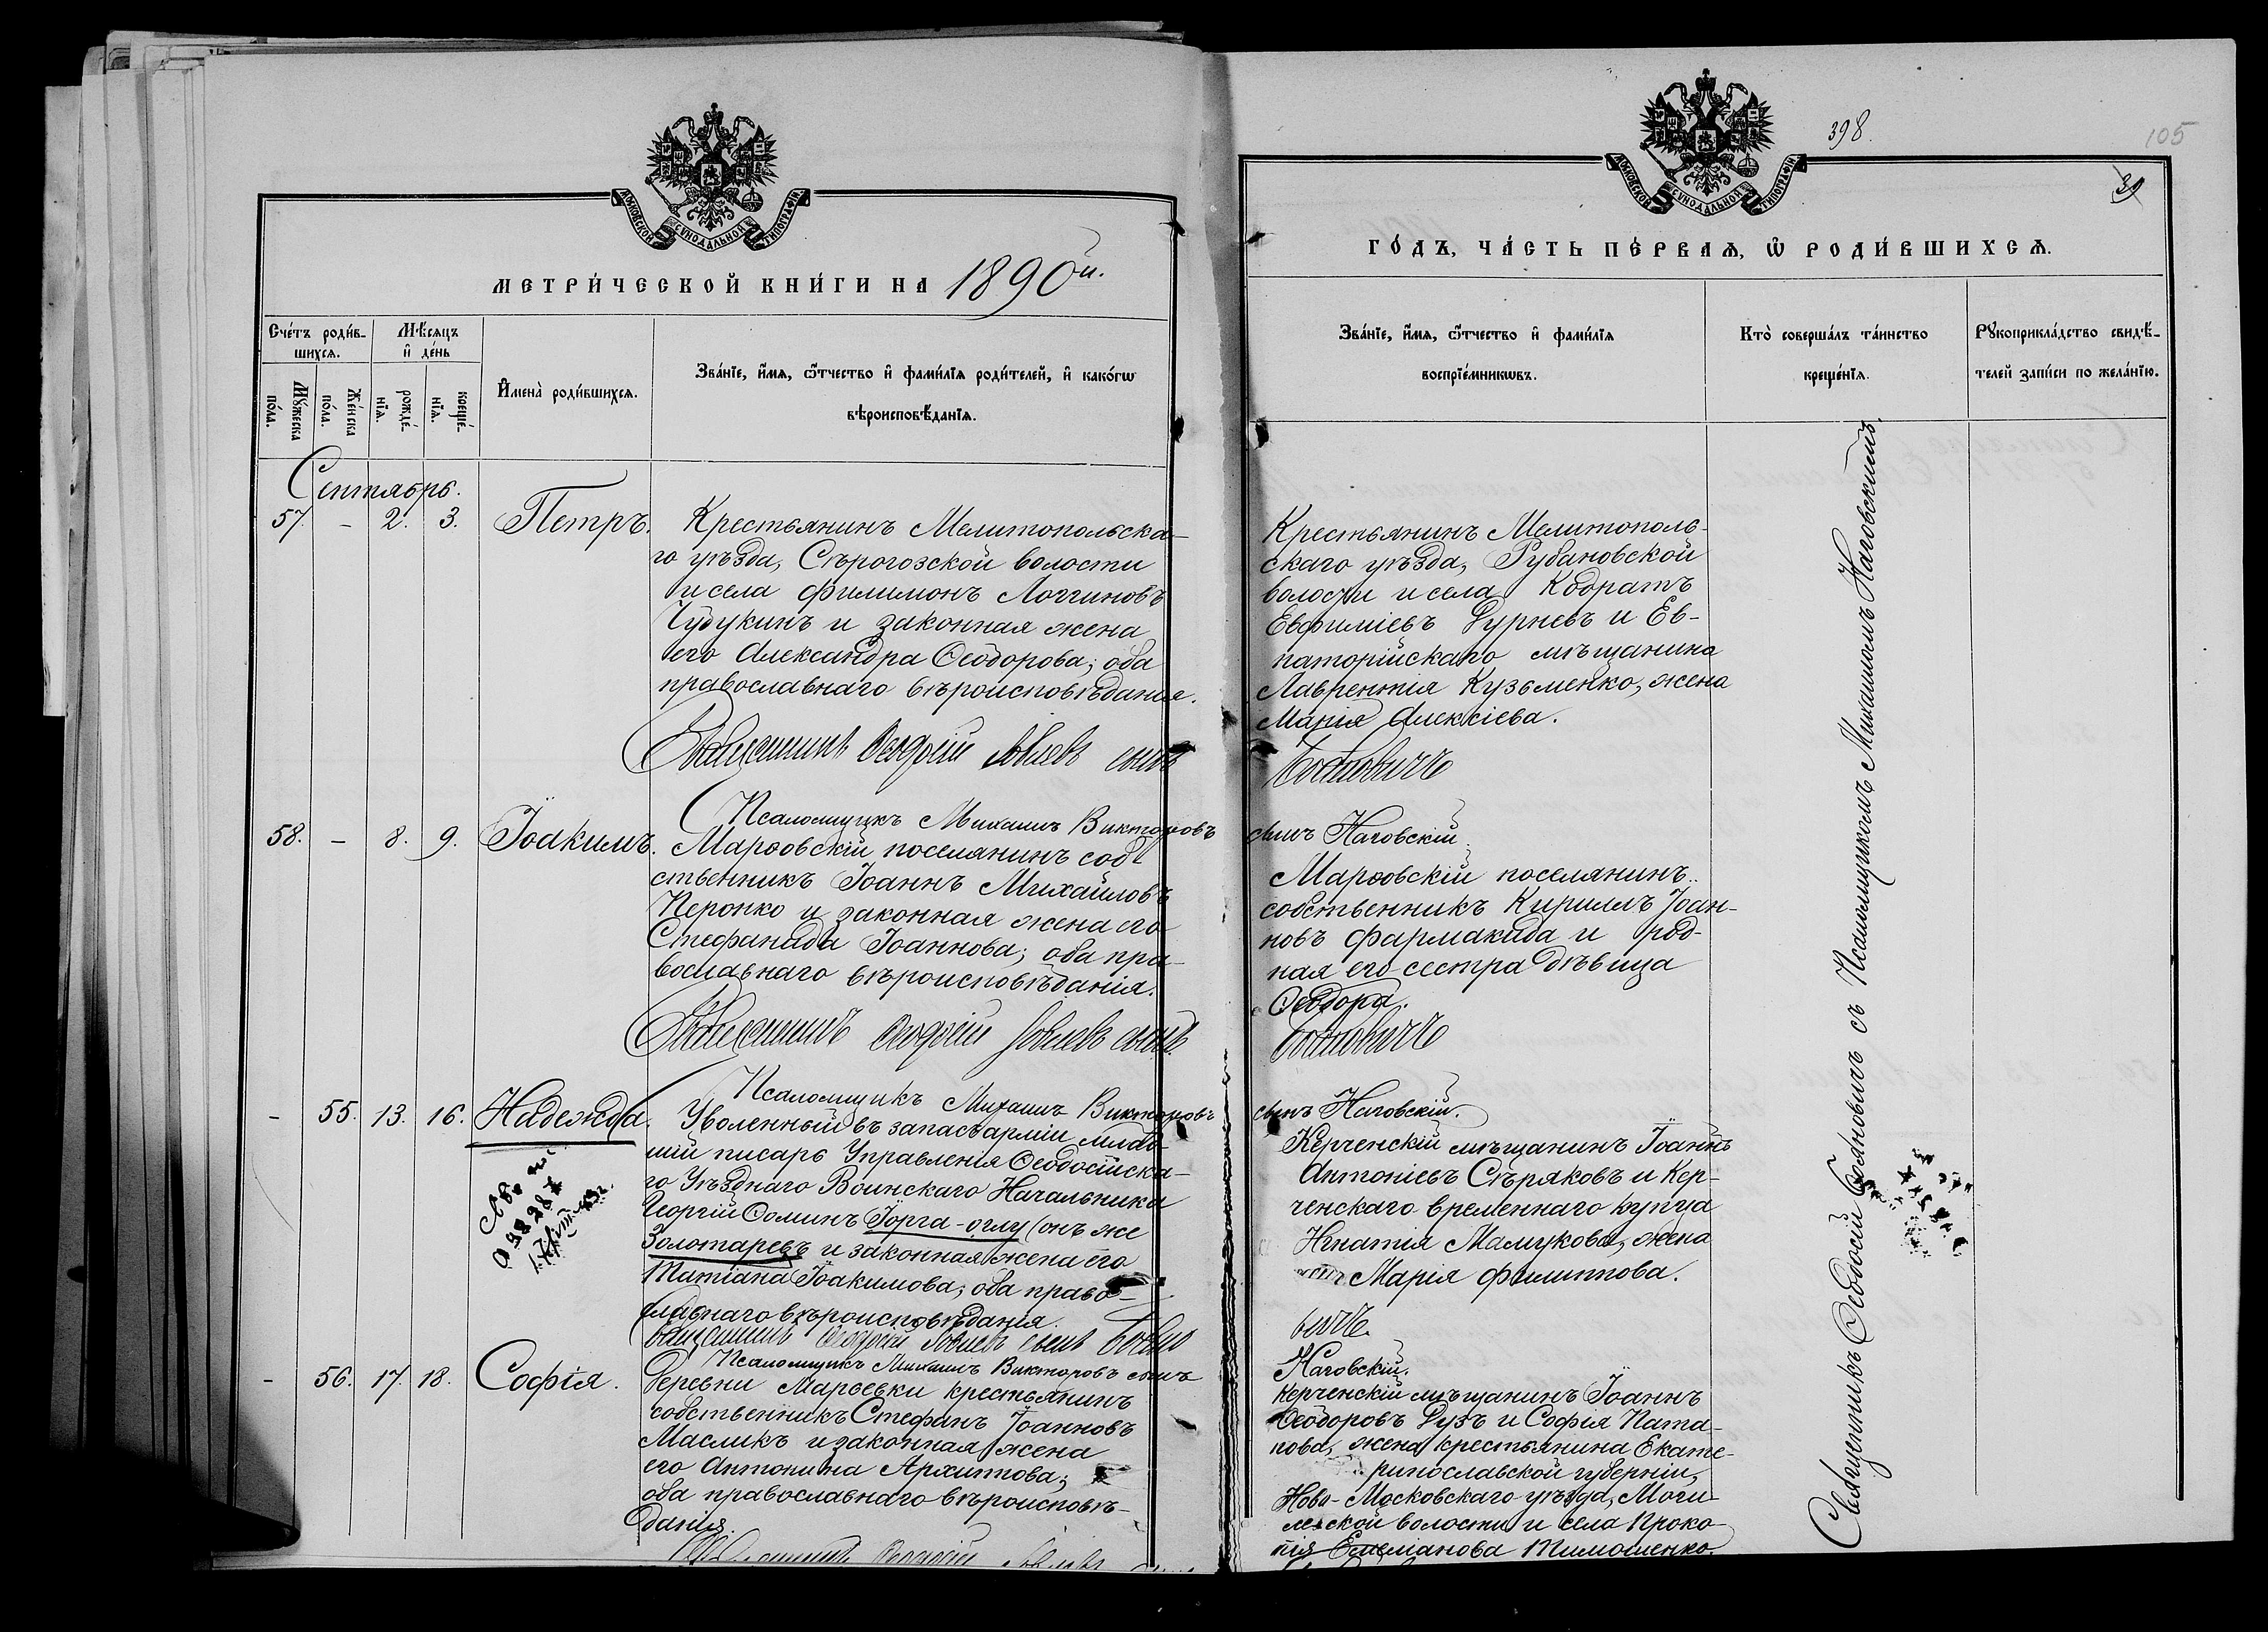 МОСКОВСКОЙ СѴНОДАЛЬНОЙ ТИПОГРАФІИ
МЕТРИ́ЧЕСКОЙ КНИ́ГИ НА 1890й.
Сче́тъ роди́в-
шихсѧ.
Мѣ́сѧцъ
и҆ де́нь
Мꙋ́жеска
по́ла.
Же́нска
по́ла.
рожде́-
нїѧ.
креще́-
нїѧ.
И҆мена̀ роди́вшихсѧ.
Зва́нїе, и҆́мѧ, ѻ҆́тчество и҆ фами́лїѧ роди́телей, и҆ како́гѡ
вѣроисповѣ́данїѧ.
Сентябрь.
57. - 2. 3. Петръ.
Крестьянинъ Мелитопольска-
го уѣзда, Сѣрогозской волости
и села Филимонъ Логгиновъ
Чудукинъ и законная жена
его Александра Ѳеодорова; оба
православнаго вѣроисповѣданія.
Священникъ Ѳеодосій сынъ
58. - 8. 9. Іоакимъ.
Псаломщикъ Михаилъ Викторовъ
Марѳовскій поселянинъ соб-
ственникъ Іоаннъ Михайловъ
Перонко и законная жена его
Стефанида Іоаннова; оба пра-
вославнаго вѣроисповѣданія.
Священникъ Ѳеодосій сынъ
- 55. 13. 16. Надежда.
Псаломщикъ Михаилъ Викторовъ
Уволенный въ запасъ арміи млад-
шій писарь Управленія Ѳеодосійска-
го Уѣзднаго Воинскаго Начальника
Георгій Ѳоминъ Іорга-оглу (онъ же
Золотаревъ и законная жена его
Татіана Іоакимова; оба право-
славнаго вѣроисповѣданія.
Священникъ Ѳеодосій сынъ Бояно
- 56. 17. 18. Софія.
Псаломщикъ Михаилъ Викторовъ сынъ
Деревни Марьевки крестьянинъ
собственникъ Стефанъ Іоанновъ
Масликъ и законная жена
его Антонина Архиппова;
оба православнаго вѣроисповѣ-
данія.
398.
105
МОСКОВСКОЙ СѴНОДАЛЬНОЙ ТИПОГРАФІИ
ГО́ДЪ, ЧА́СТЬ ПЕ́РВАѦ, Ѽ РОДИ́ВШИХСѦ.
Зва́нїе, и҆́мѧ, ѻ҆́тчество и҆ фами́лїѧ
воспрїе́мникѡвъ.
Кто̀ соверша́лъ та́инство
креще́нїѧ.
Рꙋкоприкла́дство свидѣ́-
телей за́писи по жела́нїю.
Крестьянинъ Мелитополь-
скаго уѣзда, Рубановской
волости и села Кодратъ
Евфиміевъ Дурневъ и Ев-
паторійскаго мѣщанина
Лаврентія Кузьменко, жена
Марія Алексіева.
Бояновичъ
сынъ Наговскій.
Марѳовскій поселянинъ
собственникъ Кириллъ Іоан-
новъ Фармакида и род-
ная его сестра дѣвица
Ѳеодора.
Бояновичъ
сынъ Наговскій.
Керченскій мѣщанинъ Іоаннъ
Антоніевъ Сѣряковъ и Кер-
ченскаго временнаго купца
Игнатія Мамукова, жена
Марія Филиппова.
вичъ.
Наговскій.
Керченскій мѣщанинъ Іоаннъ
Ѳеодоровъ Дузъ и Софія Пата-
пова, жена крестьянина Екате-
ринославской губерніи,
Ново-Московскаго уѣзда, Моги-
левской волости и села Проко-
пія Емеліанова Тимошенко.
Священникъ Ѳеодосій Бояновичъ съ Псаломщикомъ Михаиломъ Наговскимъ.